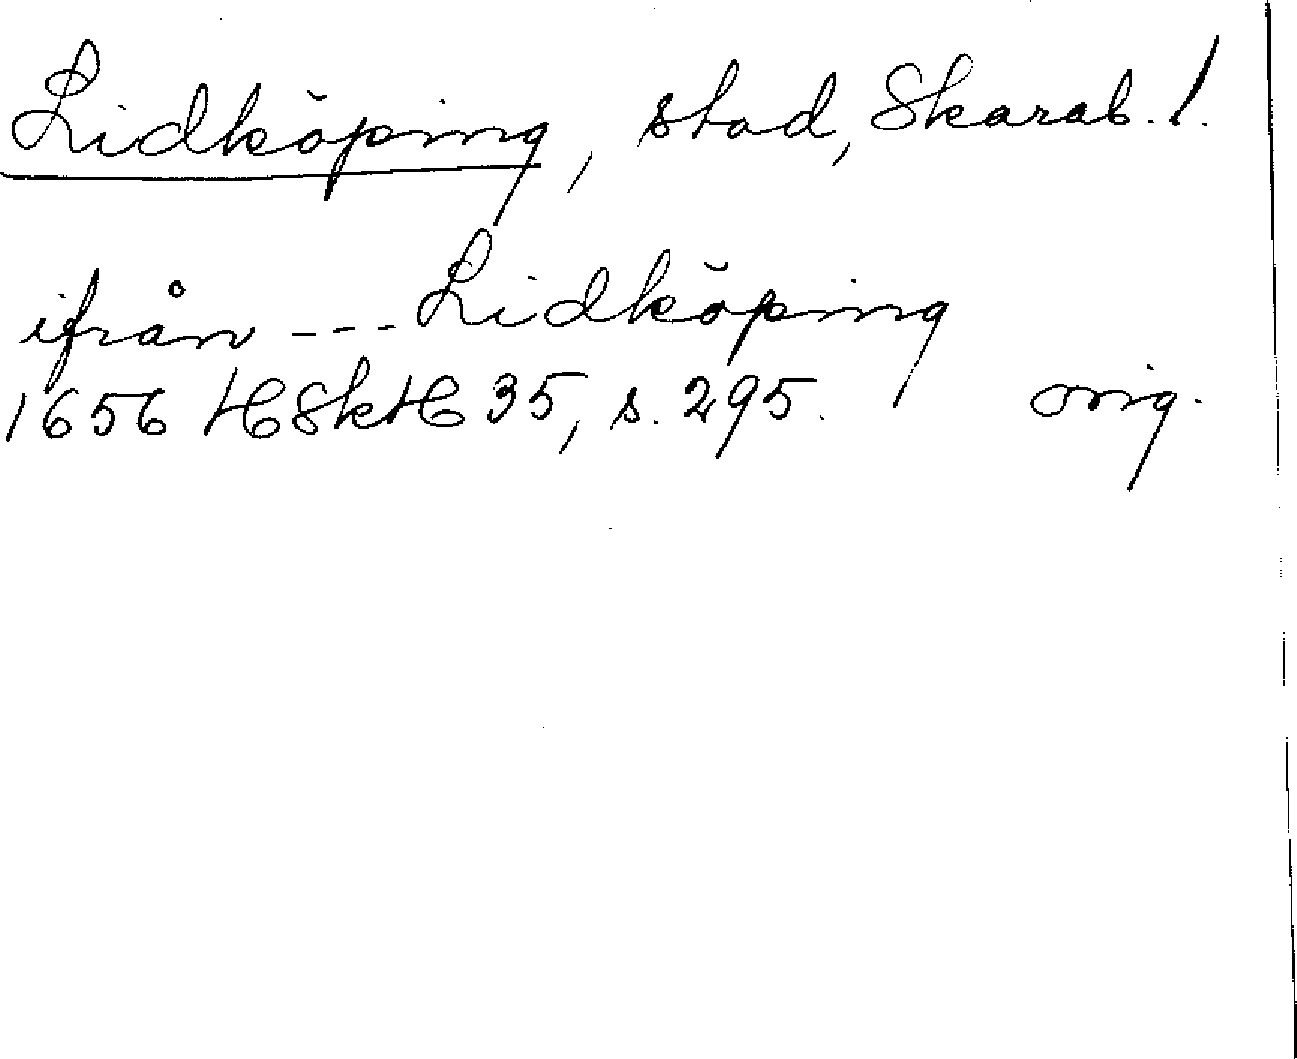 Lidköping, stad, Skarab. l.
ifrån --- Lidköping
1656 HSkH 35, s. 295. orig.